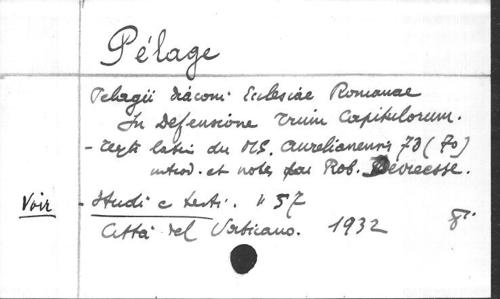 Pélage
Pelagii diaconi Ecclesiae Romanae
In Defensione Trium Capitulorum.
- texte latin du MS. Aurelianensis 73 (70)
introd. et notes par Rob. Devreesse.
Voir - Studi e testi. n 57
Città del Vaticano. 1932 8°.